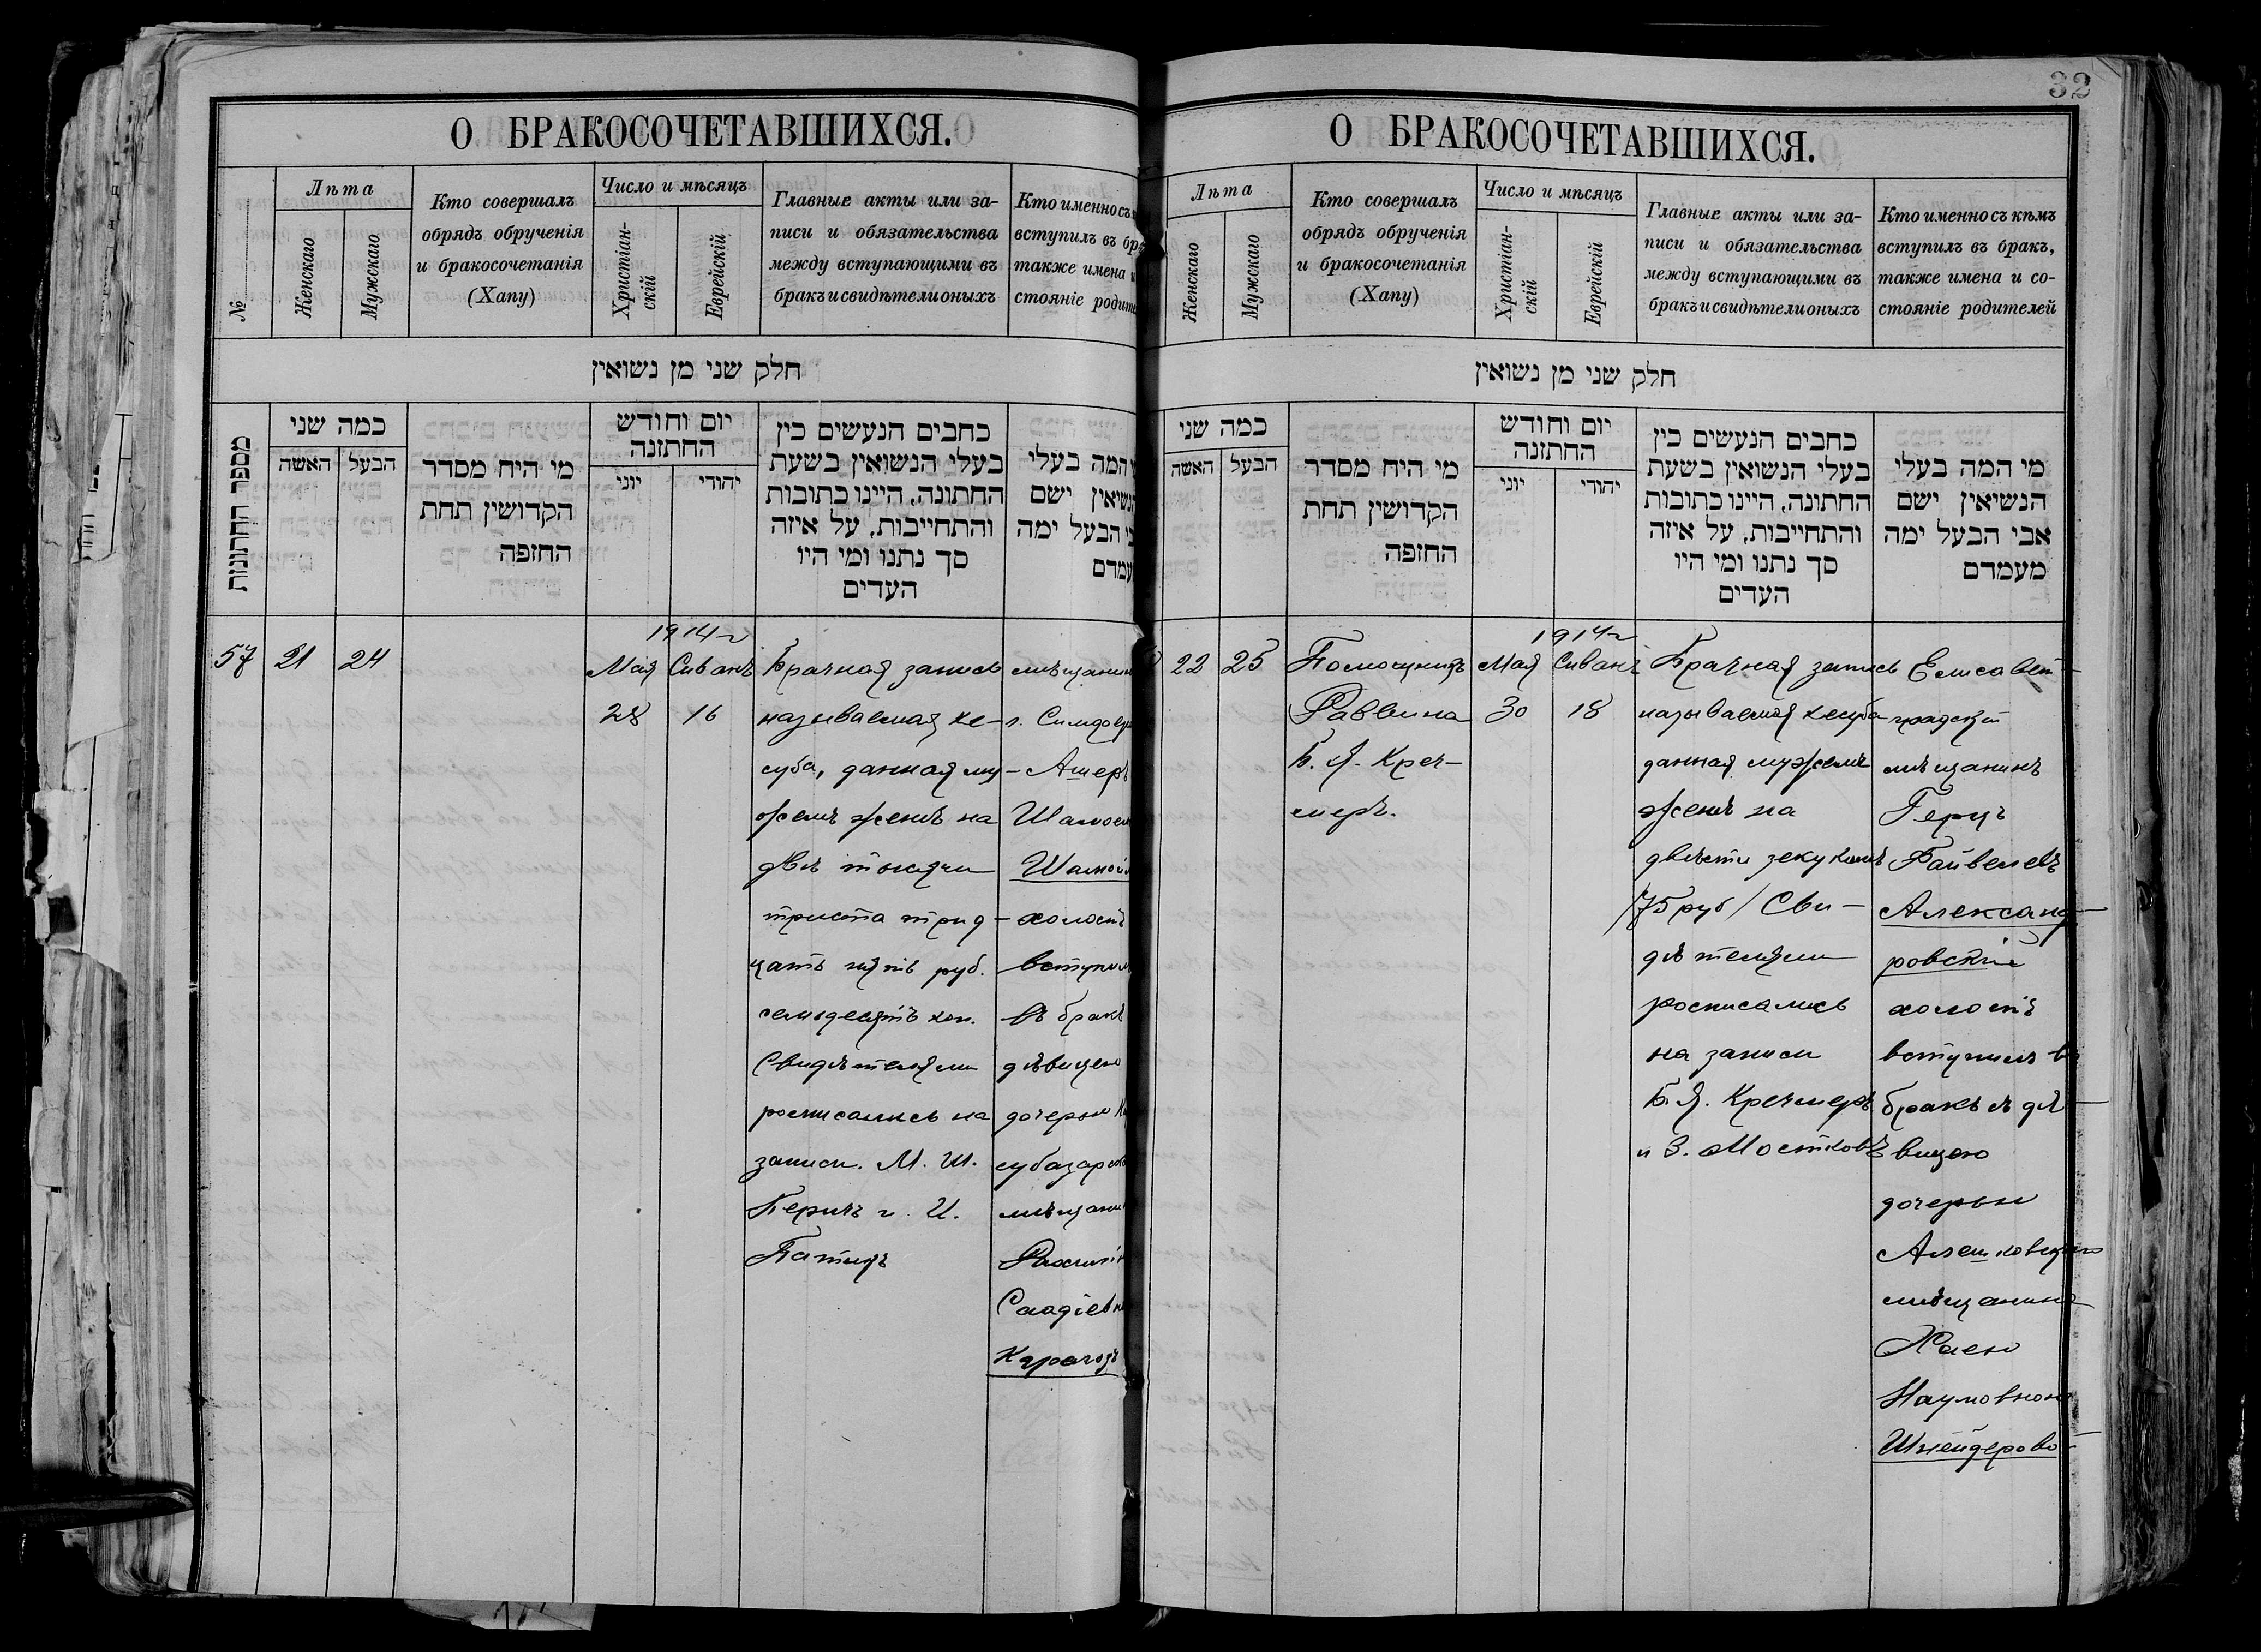 32
О БРАКОСОЧЕТАВШИХСЯ.
№
Лѣта
Женскаго
Мужскаго
Кто совершалъ
обрядъ обрученія
и бракосочетанія
(Хапу)
Число и мѣсяцъ
Христіан-
скій
Еврейскій
Главные акты или за-
писи и обязательства
между вступающими въ
бракъ и свидѣтели оныхъ
Кто именно съ
вступилъ въ
также имена
стояніе
חלק שני מן נשואין
מספר החתונות
כמה שני
האשה
הבעל
מי היח מסדר
הקדושין תחת
החופה
יום וחודש
החתונה
יוני
יהודי
כחבים הנעשים כין
בעלי הנשואין בשעת
החתונה, היינו כתובות
והתחייבות, על איזה
סך נתנו ומי היו
העדים
המה בעלי
ישם
הבעל ימה
57
21
24
1914 г
Мая Сиванъ
28 16
Брачная запись
называемая ке-
суба, данная му-
жемъ женѣ на
двѣ тысячи
триста трид-
цать пять руб.
семьдесятъ коп.
Свидѣтелями
росписались на
записи. М. Ш.
и И.
г.
Ашеръ
холостъ
въ бракъ
дѣвицею
дочерью
О БРАКОСОЧЕТАВШИХСЯ.
Лѣта
Женскаго
Мужскаго
Кто совершалъ
обрядъ обрученія
и бракосочетанія
(Хапу)
Число и мѣсяцъ
Христіан-
скій
Еврейскій
Главные акты или за-
писи и обязательства
между вступающими въ
бракъ и свидѣтели оныхъ
Кто именно съ кѣмъ
вступилъ въ бракъ,
также имена и со-
стояніе родителей
חלק שני מן נשואין
כמה שני
האשה
הבעל
מי היח מסדר
הקדושין תחת
החופה
יום וחודש
החתונה
יוני
יהודי
כחבים הנעשים כין
בעלי הנשואין בשעת
החתונה, היינו כתובות
והתחייבות, על איזה
סך נתנו ומי היו
העדים
מי המה בעלי
הנשיאין ישם
אבי הבעל ימה
מעמדם
22
25
Помощникъ
Раввина
Б. Я. Креч-
меръ.
1914 г
Мая Сиванъ
30 18
Брачная запись
называемая кесуба
данная мужемъ
женѣ на
двѣсти зекукимъ
/75 руб/ Сви-
дѣтелями
росписались
на записи
Б. Я. Кречмеръ
и З. Мостковъ
Елисавет-
градскій
мѣщанинъ
Герцъ
Файвелевъ
Александ-
ровскій
холостъ
вступилъ въ
бракъ съ дѣ-
вицею
дочерью
Алешковскаго
мѣщанина
Хаею
Наумовною
Шнейдеровой